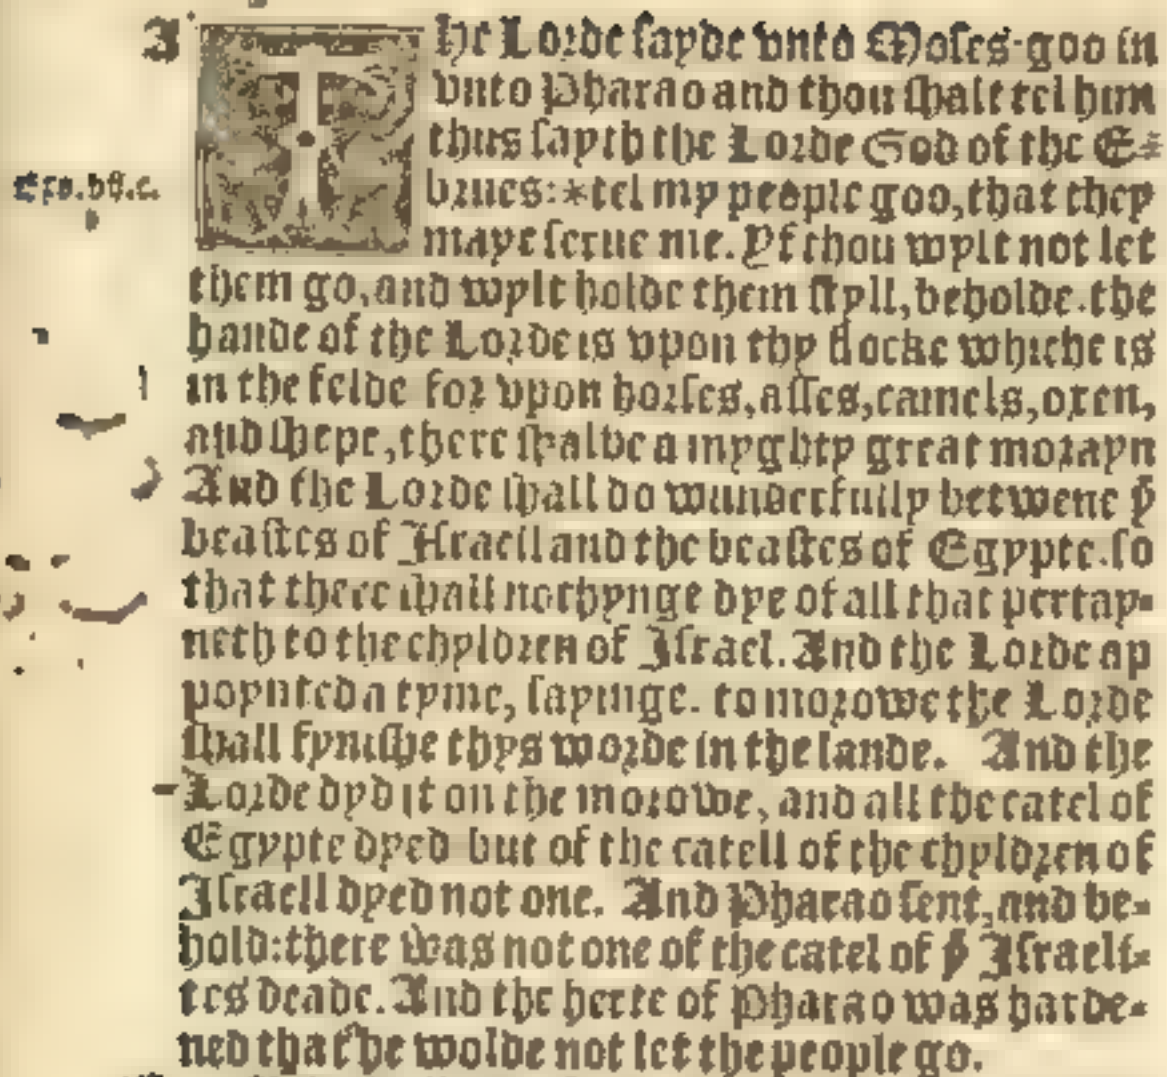 A
The Lorde sayde vnto Moses goo in
vnto Pharao and thou shalt tel him
thus sayth the Lorde God of the E=
Exo.viii.c.
brues:*tel my people goo, that they
maye serue me. Yf thou wylt not let
them go, and wylt holde them styll, beholde.the
hande of the Lorde is vpon thy flocke whiche is
in the felde for vpon horses, asses, camels, oxen,
and shepe, there shalbe a myghty great morayn
And the Lorde shall do wunderfully betwene ÿ
beastes of Israell and the beastes of Egypte.so
that there shall nothynge dye of all that pertay=
neth to the chyldren of Israel. And the Lorde ap
poynted a tyme, sayinge. to morowe the Lorde
shall fynishe thys worde in the lande. And the
Lorde dyd it on the morowe, and all the catel of
Egypte dyed but of the catell of the chyldren of
Israell dyed not one. And Pharao sent, and be=
hold:there was not one of the catel of ÿ Israeli=
tes deade. And the herte of Pharao was harde=
ned that he wolde not let the people go.